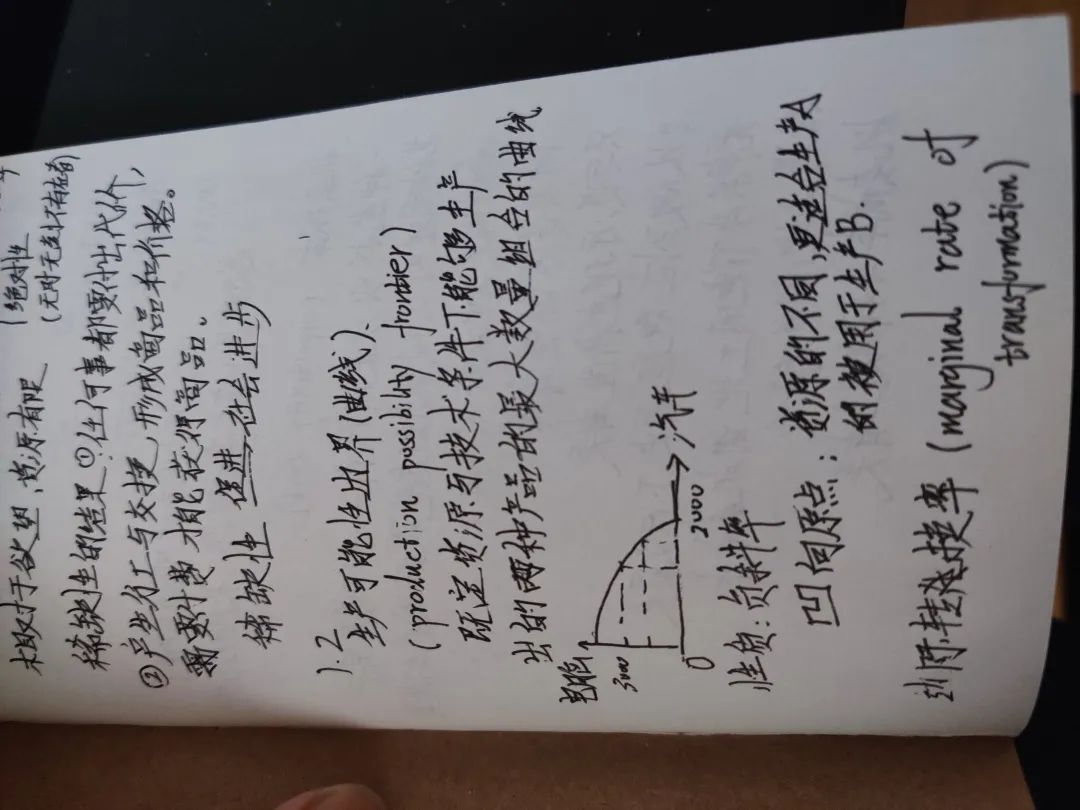 相对于欲望,资源有限 (绝对性
(无时无处不存在着)
稀缺性的结果①任何事都要付出代价,
②产生分工与交换,形成商品和价格。
需要付费才能获得商品。
稀缺性 促进 社会进步
1.2
生产可能性边界(曲线).
(production possibility frontier)
既定资源与技术条件下能够生产
出的两种产品的最大数量组合的曲线
电脑
3000
0
2000
汽车
性质:负斜率
凹向原点:资源的不同,更适合生产A
的被用于生产B.
边际转换率(marginal rate of
transformation)